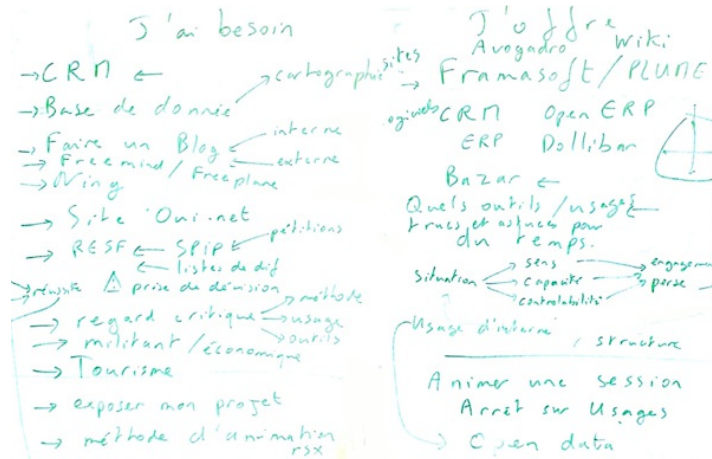 J'ai besoin
→ CRM ←
→ Base de donnée → cartographie
→ Faire un Blog interne
→ Freemind / Freeplane externe
→ Ning
→ Site Oui.net
→ RESF ← SPIP ← pétitions
← listes de dif
→ réussite ⚠ prise de décision
→ regard critique → méthode
→ usage
→ outils
→ militant / économique
→ Tourisme
→ exposer mon projet
→ méthode d'animation
rsx
J'offre
Avogadro Wiki
sites → Framasoft / PLUME
ogiciels CRM Open ERP
ERP Dollibar
Bazar ←
Quels outils / usages ←
trucs et astuces pour
du temps.
Situation → sens → engagemen
→ capacité → perse
→ controlabilité
Usage d'interne
/ structure
Animer une session
Arrêt sur Usages
→ Open data